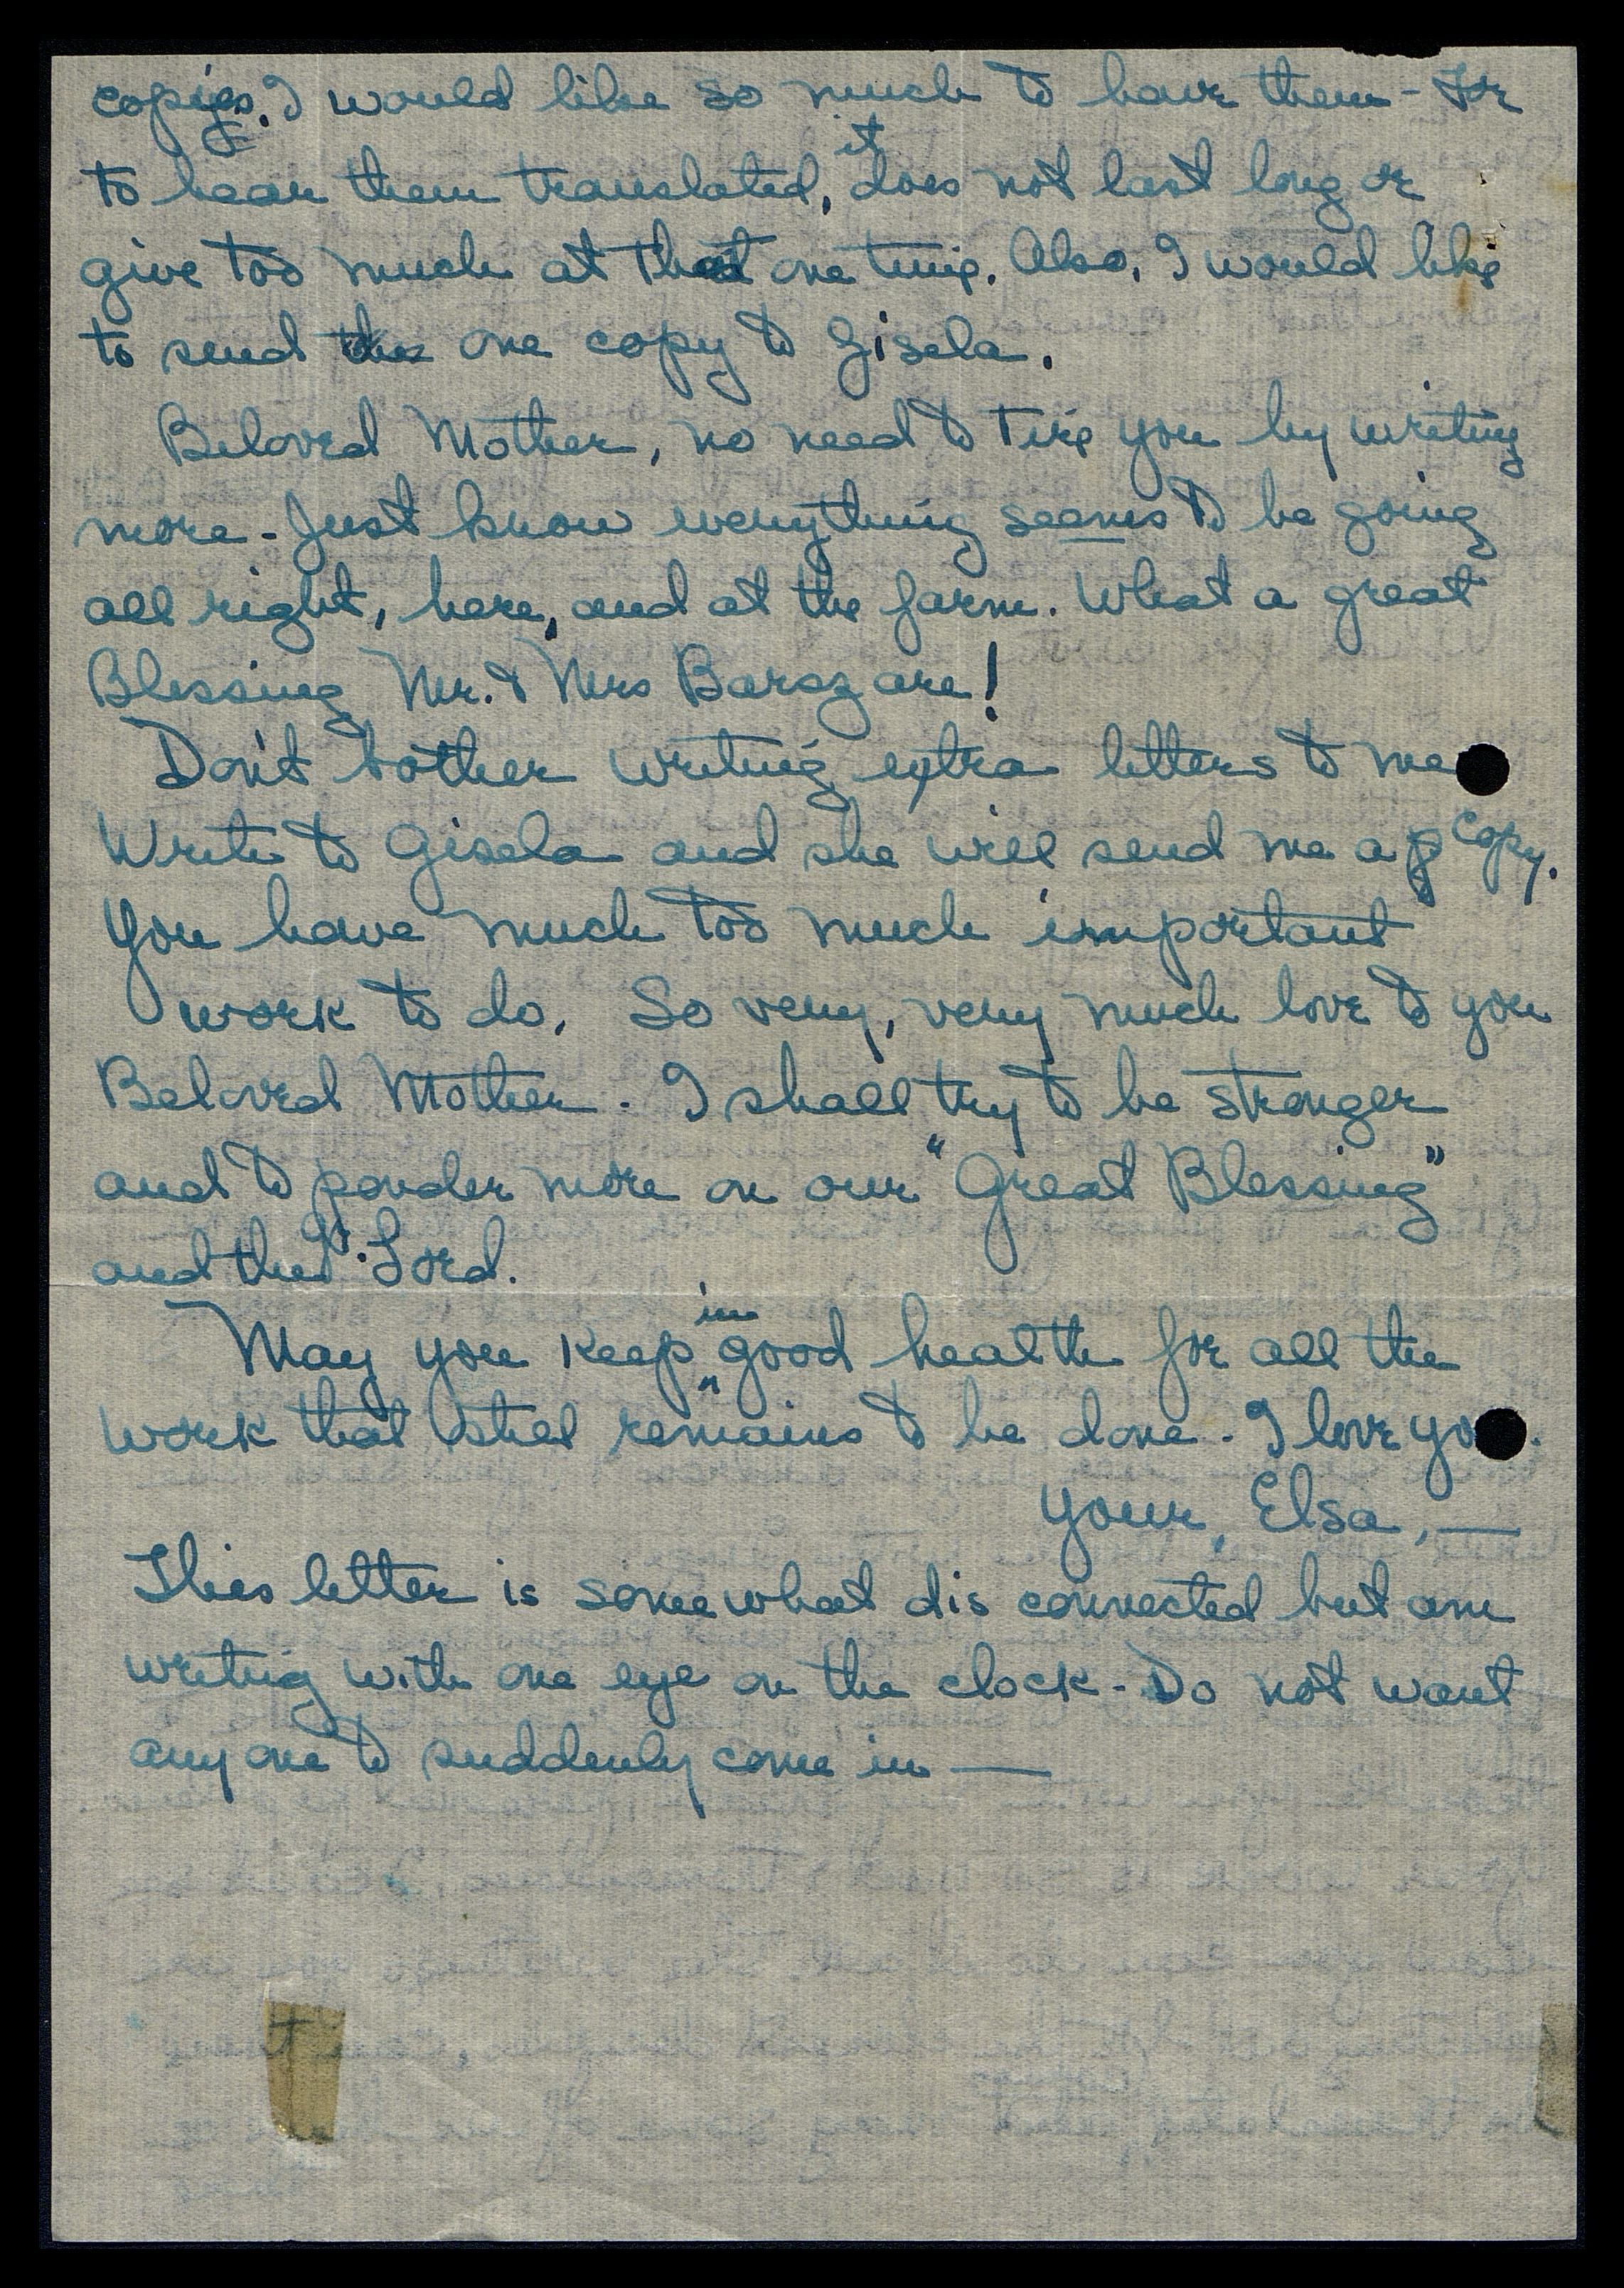 copies. I would like so much to have them - For
to hear them translated, it does not last long or
give too much at that one time. Also, I would like
to send the one copy to Gisela.
Beloved Mother, no need to tire you by writing
more - Just know everything seems to be going
all right, here, and at the farm. What a great
Blessing Mr. & Mrs Barsz are!
Don't bother writing extra letters to me
Write to Gisela and she will send me a copy.
You have much too much important
work to do. So very, very much love to you
Beloved Mother. I shall try to be stronger
and to ponder more on our "Great Blessing"
and the Lord.
May you keep in good health for all the
work that still remains to be done. I love you.
Your, Elsa, —
This letter is somewhat dis connected but am
writing with one eye on the clock - Do not want
any one to suddenly come in —